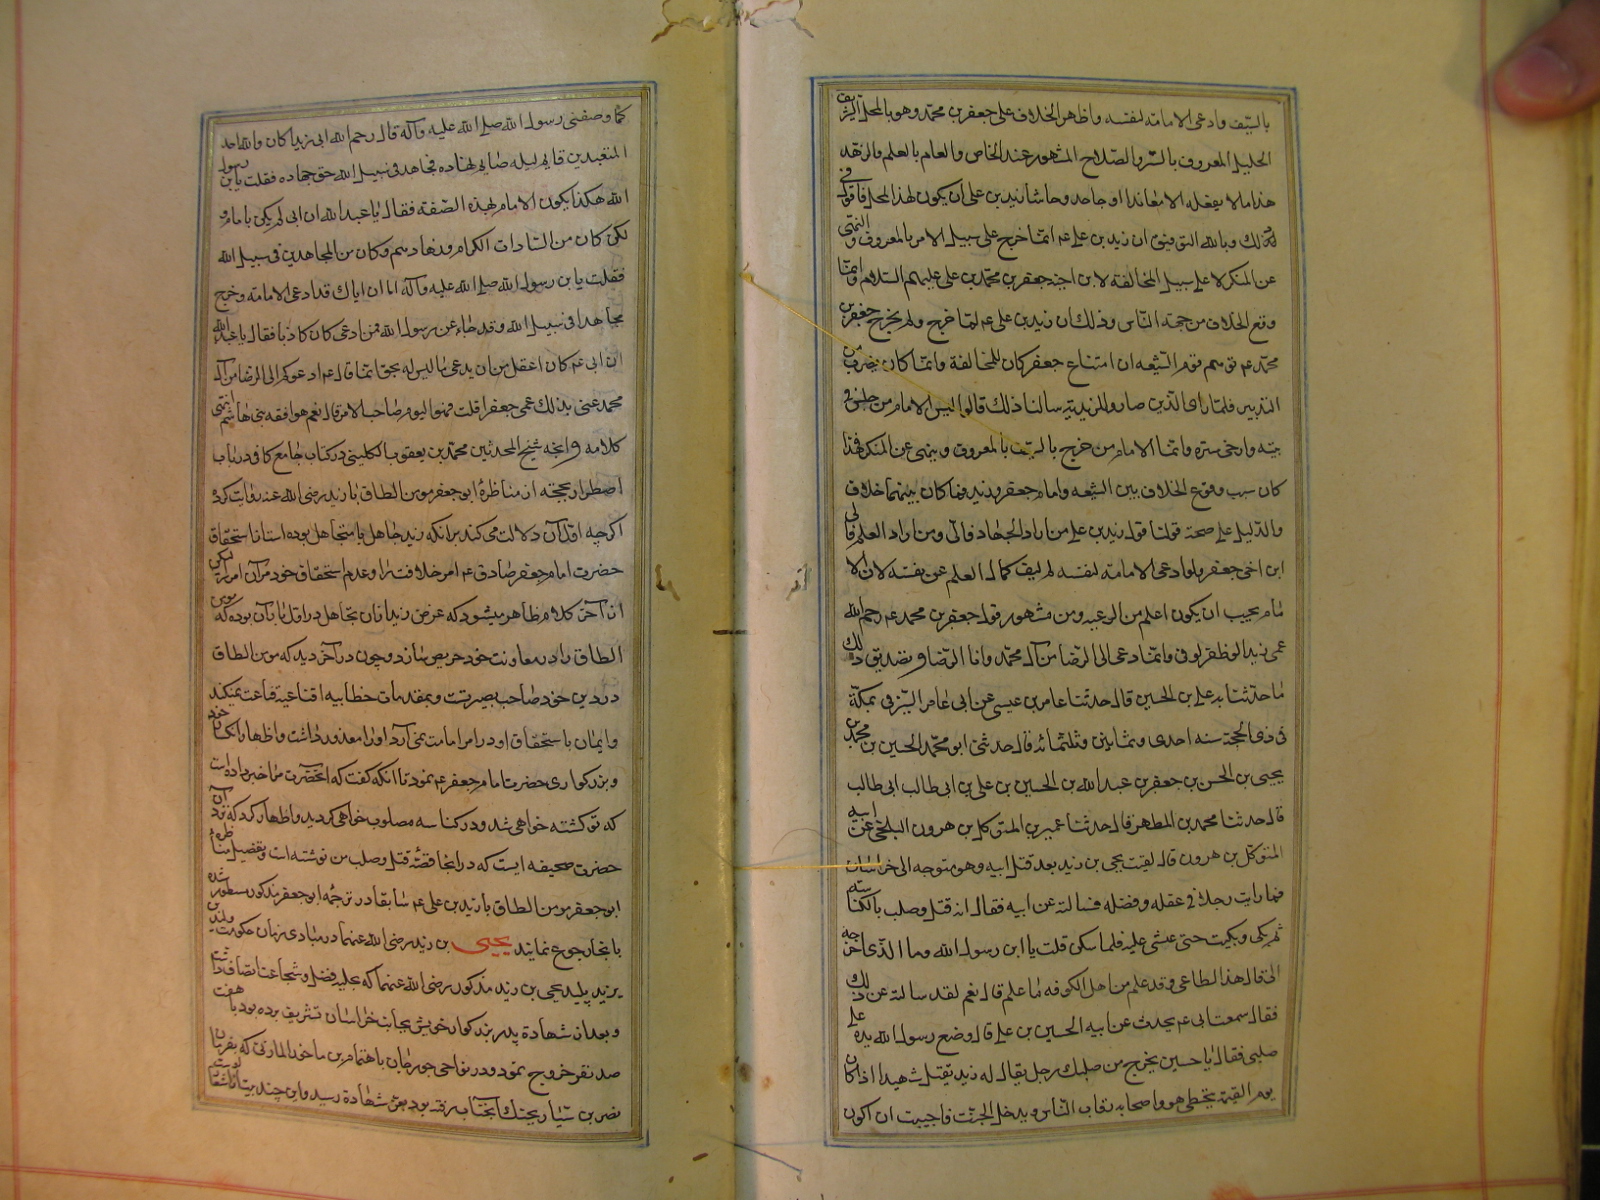 بالسیف وادعی الامامة لنفسه واظهر الخلاف علی جعفر بن محمد وهو بالمحل الشریف
الجلیل المعروف بالستر والصلاح المشهور عند الخاص والعام بالعلم والزهد
هذا ما لا یفعله الا معاندا او جاحد وحاشا زید بن علی ان یکون لهذا المحل فاقول فی
ذلک وبالله التوفیق ان زید بن علی ع م انما خرج علی سبیل الامر بالمعروف والنهی
عن المنکر لا علی سبیل المخالفة لابن اخیه جعفر بن محمد بن علی علیهم السلام وانما
وقع الخلاف من جهة الناس وذلک ان زید بن علی ع م لما خرج ولم یخرج جعفر بن
محمد ع م توهم قوم الشیعه ان امتناع جعفر کان للمخالفة وانما کان ضرب من
التدبیر فلما رای الذین صاروا الزیدیة سالنا ذلک قالوا لیس الامام من جلس فی
بیته وارخی ستره وانما الامام من خرج بالسیف بالمعروف وینهی عن المنکر فهذا
کان سبب وقوع الخلاف بین الشیعه واما جعفر وزید فما کان بینهما خلاف
والدلیل علی صحة قولنا قول زید بن علی من اراد الجهاد فالی ومن اراد العلم فالی
ابن اخی جعفر ولو ادعی الامامة لنفسه لم ینف کمال العلم عن نفسه لان الا
مام یجب ان یکون اعلم من الرعیه ومن مشهور قول جعفر بن محمد ع م رحم الله
عمی زیدا لو ظفر لوفی وانما دعی الی الرضا من آل محمد وانا الرضا و تصدیق ذلک
ما حدثنا به علی بن الحسین قال حدثنا عامر بن عیسی عن ابی عامر السیرفی بمکة
فی ذی الحجة سنه احدی وثمانین وثلثمائة قال حدثنی ابو محمد الحسین بن محمد بن
یحیی بن الحسن بن جعفر بن عبد الله بن الحسین بن علی بن ابی طالب ابی طالب
قال حدثنا محمد بن المطهر قال حدثنا عمیر بن المتوکل بن هرون البلخی عن ابیه
المتوکل بن هرون قال لقیت یحیی بن زید بعد قتل ابیه وهو متوجه الی خراسان
فما رایت رجلا فی عقله وفضله فسالته عن ابیه فقال انه قتل وصلب بالکناسه
ثم بکی وبکیت حتی غشی علیه فلما سکن قلت یا ابن رسول الله وما الذی اخرجه
الی قتال هذا الطاغی وقد علم من اهل الکوفه ما علم قال نعم لقد سالته عن ذلک
فقال سمعت ابی ع م یحدث عن ابیه الحسین بن علی قال وضع رسول الله یده علی
صلبی فقال یا حسین یخرج من صلبک رجل یقال له زید یقتل شهیدا اذا کان
یوم القیمة یتخطی هو واصحابه رقاب الناس ویدخل الجنة فاحببت ان اکون
کما وصفنی رسول الله صلی الله علیه وآله قال رحم الله ابی زیدا کان والله احد
المتعبدین قایم لیله صایم نهاره یجاهد فی سبیل الله حق جهاده فقلت یا بن رسول
الله هکذا یکون الامام بهذه الصفة فقال یا عبد الله ان ابی لم یکن بامام و
لکن کان من السادات الکرام وزهادهم وکان من المجاهدین فی سبیل الله
فقلت یا بن رسول الله صلی الله علیه وآله اما ان اباک قد ادعی الامامة وخرج
مجاهدا فی سبیل الله وقد جاء عن رسول الله فیمن ادعی کان کاذبا فقال یا عبد الله
ان ابی ع م کان اعقل من ان یدعی ما لیس له بحق انما قال ع م ادعوکم الی الرضا من آل
محمد عنی بذلک عمی جعفرا قلت فهو الیوم صاحب الامر قال نعم هو افقه بنی هاشم انتهی
کلامه و انچه شیخ المحدثین محمد بن یعقوب الکلینی در کتاب جامع کافی در باب
اضطرار بحجته از مناظرهٔ ابو جعفر مومن الطاق با زید رضی الله عنه روایت کرده
اگرچه اول آن دلالت می کند بر آنکه زید جاهل یا متجاهل بوده است از استحقاق
حضرت امام جعفر صادق ع م امر خلافت را و عدم استحقاق خود مر آن امر را لیکن
از آخر کلام ظاهر میشود که غرض زید از آن تجاهل در اول باب آن بوده که مومن
الطاق را در معاونت خود حریص سازد و چون در آخر دید که مومن الطاق
در دین خود صاحب بصیرتست و بمقدمات خطابیه اقناعیه قناعت نمیکند
وایمان باستحقاق او در امر امامت نمی آرد او را معذور داشت و اظهار انکسار خود
و بزرگواری حضرت امام جعفر ع م نمود تا آنکه گفت که آنحضرت مرا خبر داده است
که تو کشته خواهی شد و در کناسه مصلوب خواهی گردید و اظهار کرد که نزد آن
حضرت صحیفه ایست که در آنجا قصهٔ قتل و صلب من نوشته است و تفصیل مناظره
ابو جعفر مومن الطاق با زید بن علی ع م سابقا در ترجمه ابو جعفر مذکور مسطور شده
بانجا رجوع نمایند یحیی بن زید رضی الله عنهما در مبادی زمان حکومت ولید بن
یزید پلید یحیی بن زید مذکور رضی الله عنهما که بحلیه فضل و شجاعت اتصاف داشت
و بعد از شهادة پدر بزرگوار خویش بجانب خراسان تشریف برده بود با هفت
صد نفر خروج نمود و در نواحی جوزجان باهتمام بن ماخد المازنی که بفرمان
نصر بن سیار بجنک آنجناب رفته بود بعز شهادة رسید و این چند بیت